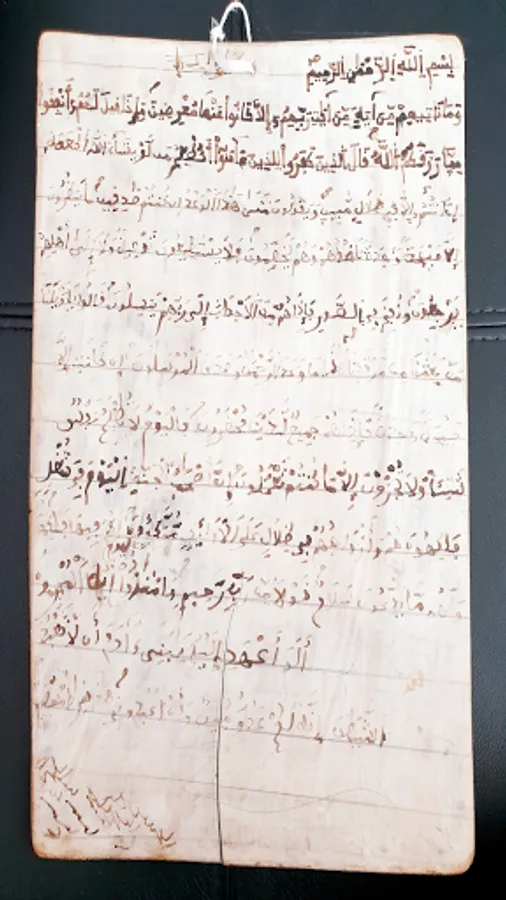 بسم الله الرحمن الرحيم
وما تاتيهم من ءاية من ءايت ربهم إلا كانوا عنها معرضين وإذا قيل لهم أنفقوا
مما رزقكم الله قال الذين كفروا للذين ءامنوا أنطعم من لو يشاء الله أطعمه
إن أنتم إلا في ضلال مبين ويقولون متى هذا الوعد إن كنتم صدقين ما ينظرون
إلا صيحة وحدة تاخذهم وهم يخصمون فلا يستطيعون توصية ولا إلى أهلهم
يرجعون ونفخ في الصور فإذا هم من الأجداث إلى ربهم ينسلون قالوا يويلنا
من بعثنا من مرقدنا هذا ما وعد الرحمن وصدق المرسلون إن كانت إلا
صيحة وحدة فإذا هم جميع لدينا محضرون فاليوم لا تظلم نفس
شيئا ولا تجزون إلا ما كنتم تعملون إن أصحب الجنة اليوم في شغل
فاكهون هم وأزوجهم في ظلل على الأرائك متكئون لهم فيها فكهة
ولهم ما يدعون سلم قولا من رب رحيم وامتزوا اليوم أيها المجرمون
ألم أعهد إليكم يبني ءادم أن لا تعبدوا
الشيطن إنه لكم عدو مبين وأن اعبدوني هذا صراط مستقيم